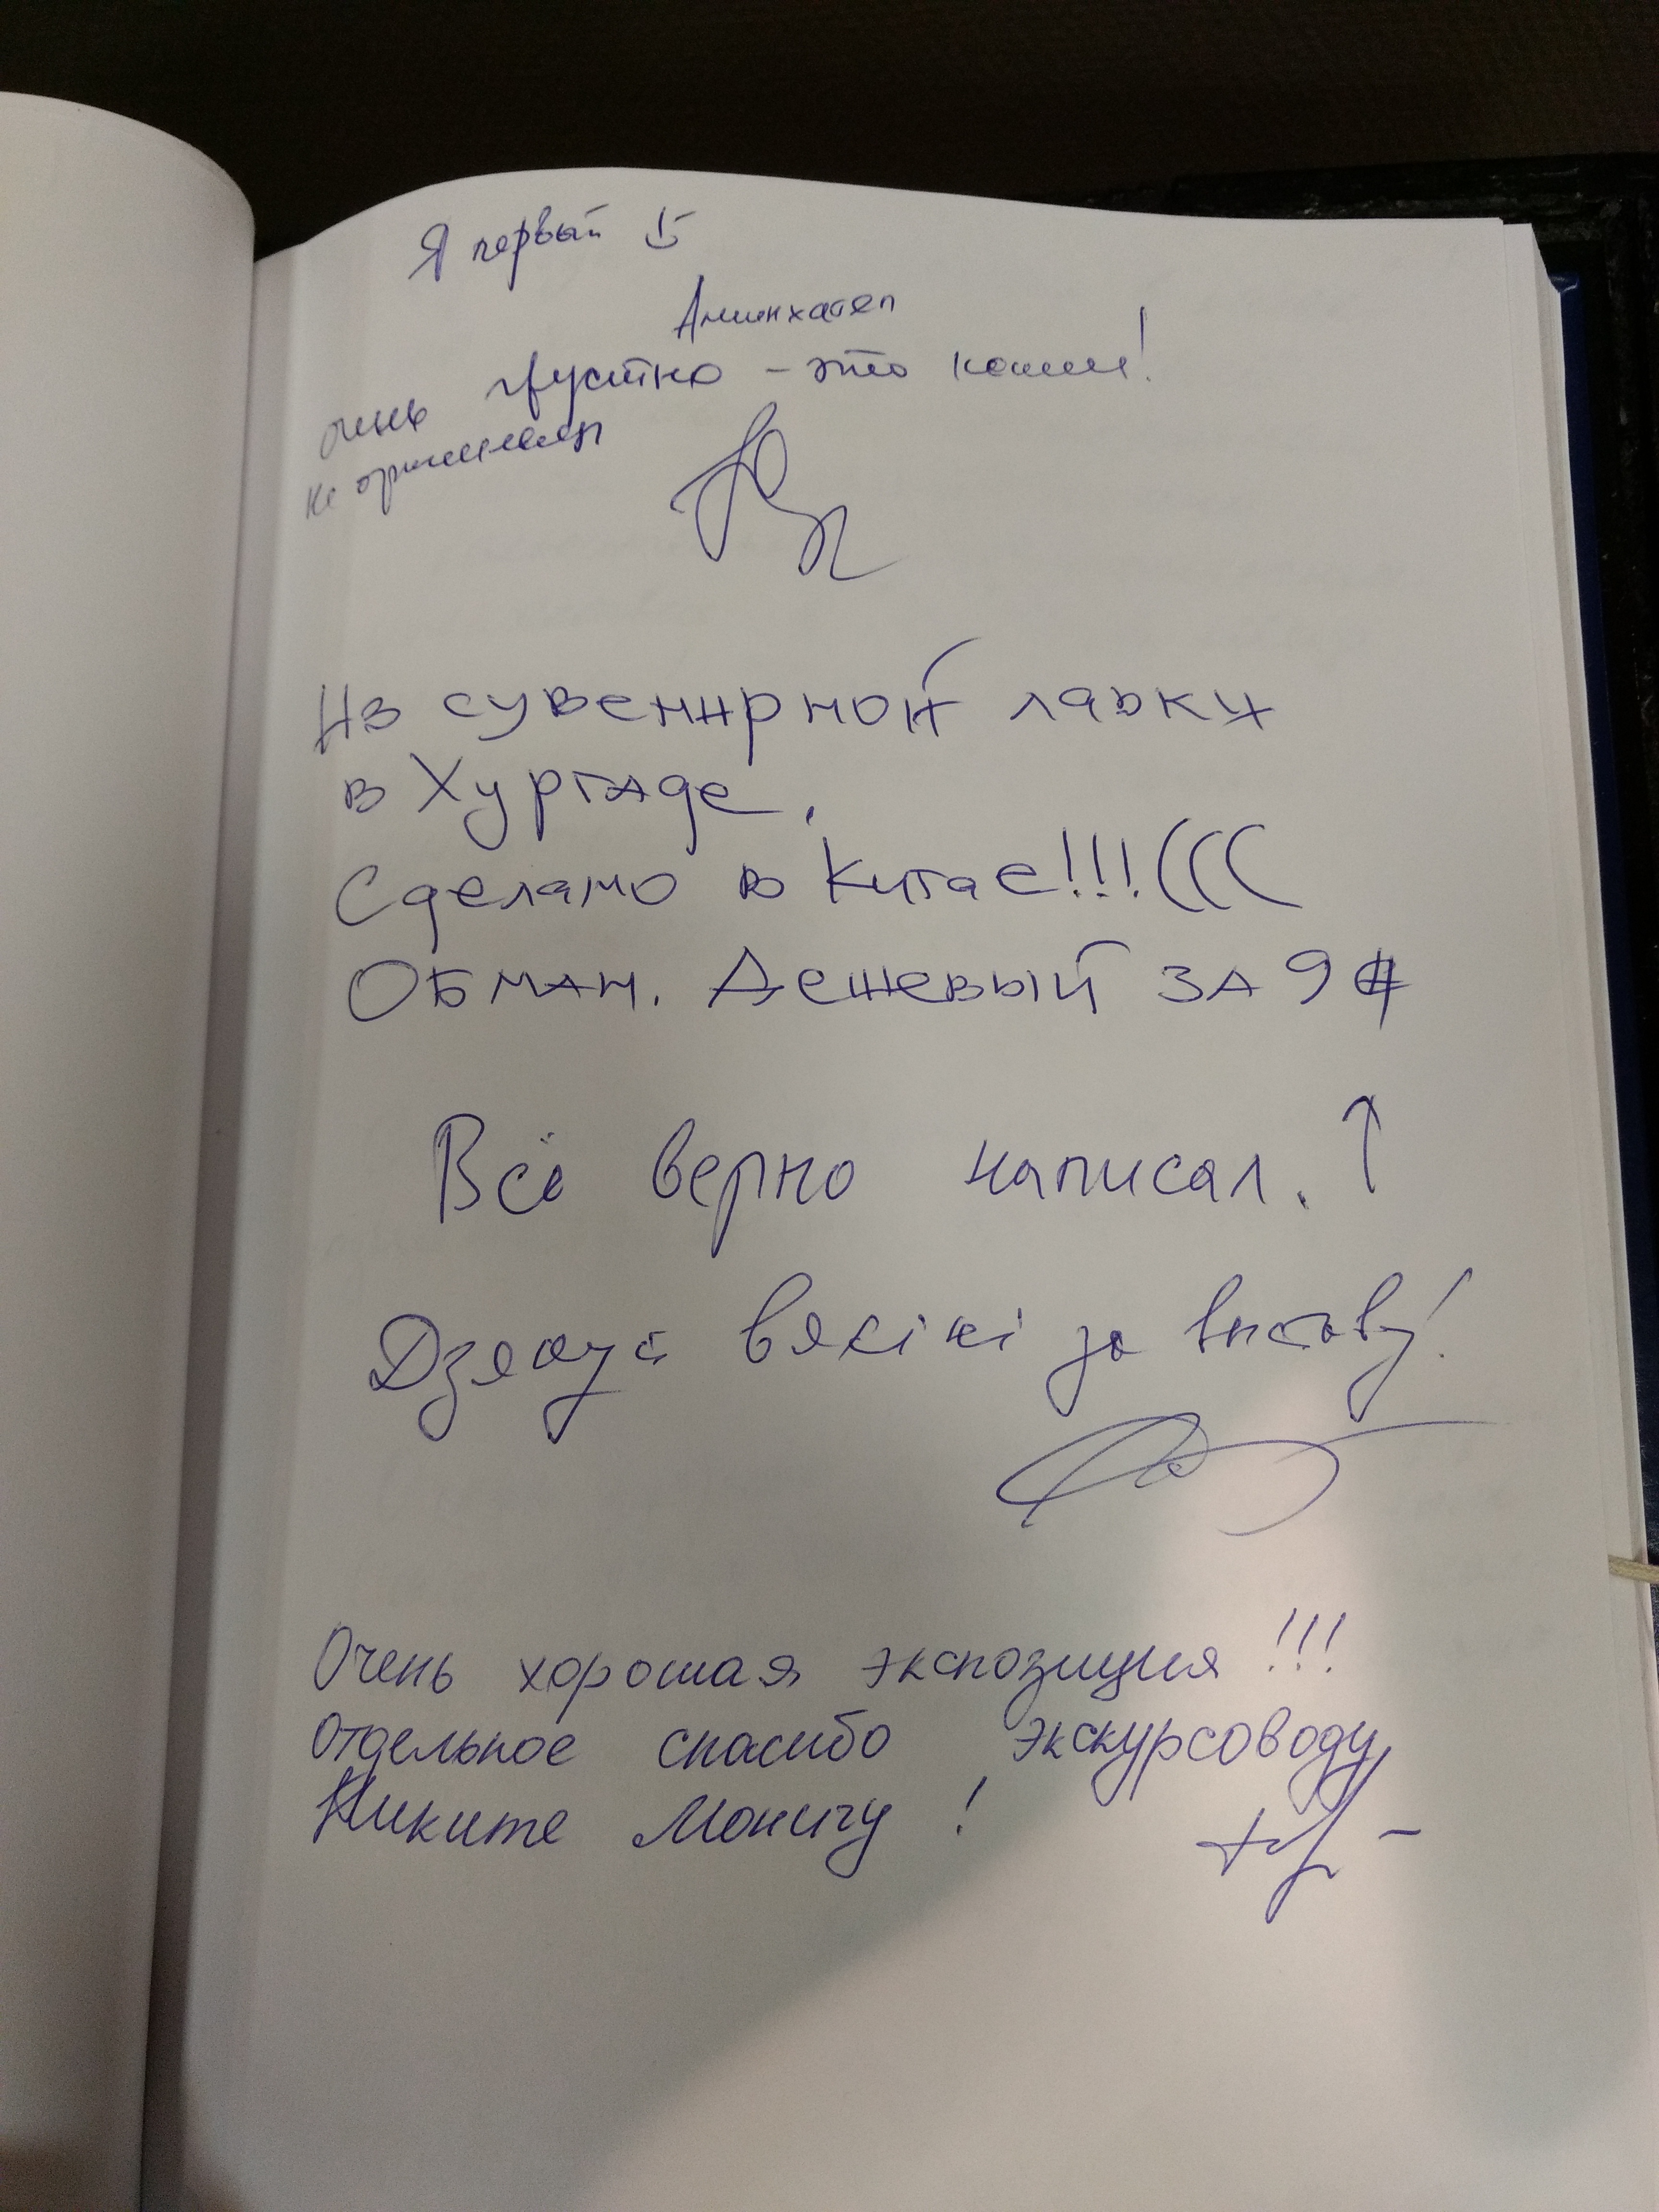 Я первый
Аминхатеп
очень грустно - это копии!
не оригиналы
Из сувенирной лавки
в Хургаде.
Сделано в Китае!!!(((
Обман. Дешевый за 9
Всё верно написал. ↑
Дзякуй вялікі за выставу!
Очень хорошая экспозиция!!!
Отдельное спасибо экскурсоводу
Никите Моничу!